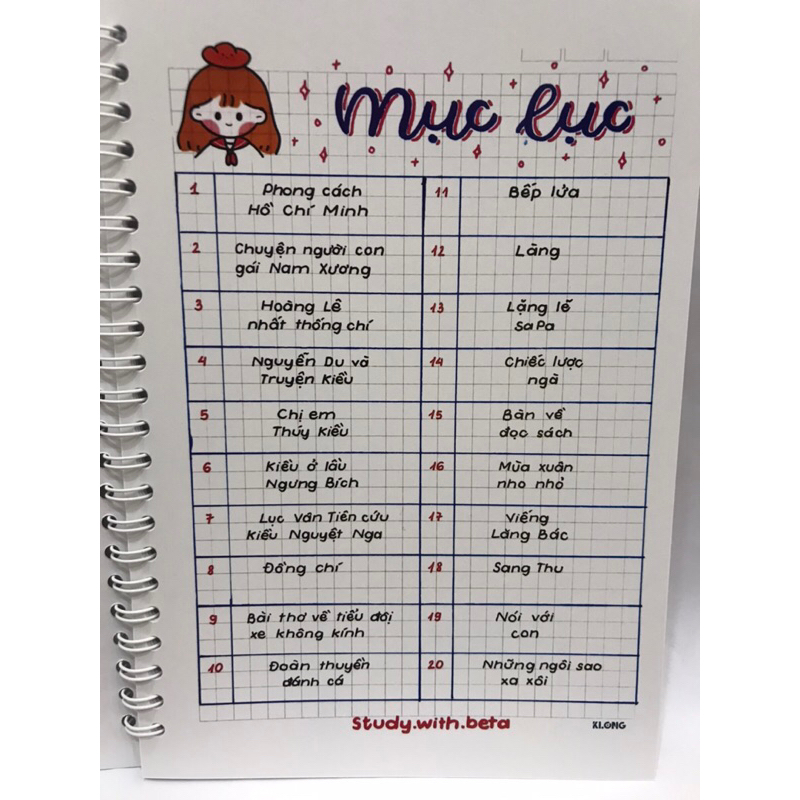 mục lục
1 Phong cách
Hồ Chí Minh
2 Chuyện người con
gái Nam Xương
3 Hoàng Lê
nhất thống chí
4 Nguyễn Du và
Truyện Kiều
5 Chị em
Thúy Kiều
6 Kiều ở lầu
Ngưng Bích
7 Lục Vân Tiên cứu
Kiều Nguyệt Nga
8 Đồng chí
9 Bài thơ về tiểu đội
xe không kính
10 Đoàn thuyền
đánh cá
11 Bếp lửa
12 Làng
13 Lặng lẽ
SaPa
14 Chiếc lược
ngà
15 Bàn về
đọc sách
16 Mùa xuân
nho nhỏ
17 Viếng
Lăng Bác
18 Sang Thu
19 Nói với
con
20 Những ngôi sao
xa xôi
Study.with.beta
KLONG